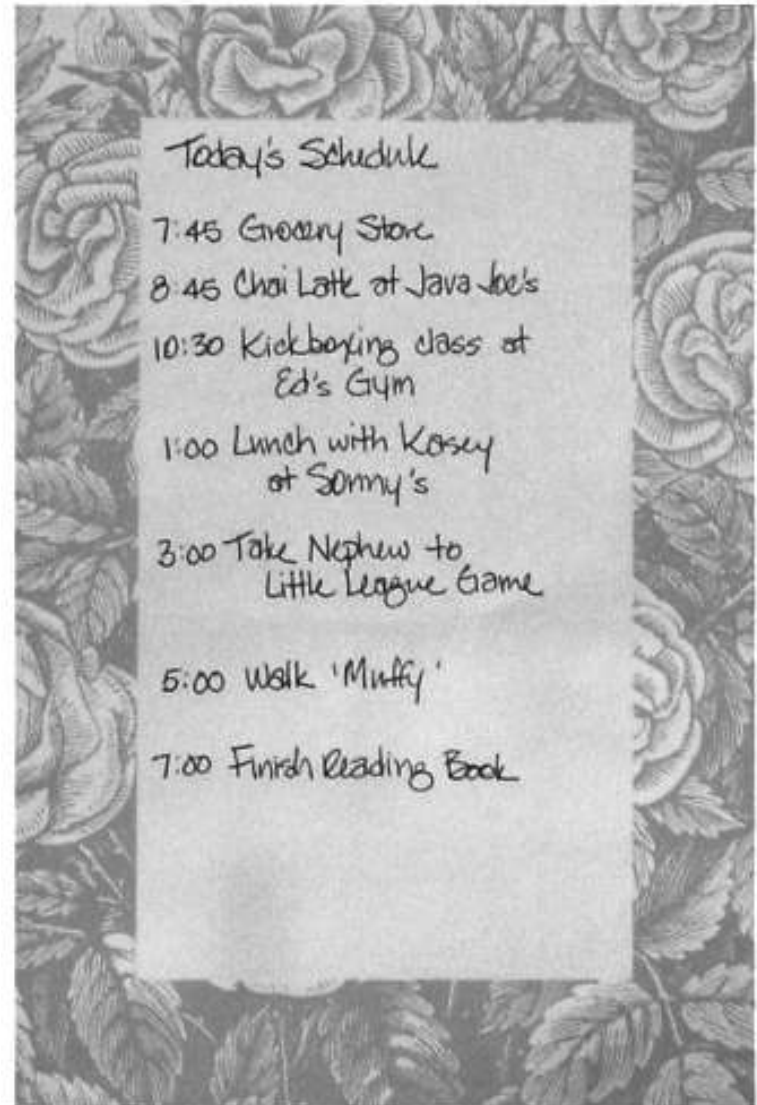 Today's Schedule
7:45 Grocery Store
8:45 Chai Latte at Java Joe's
10:30 Kickboxing class at
Ed's Gym
1:00 Lunch with Kasey
at Sonny's
3:00 Take Nephew to
Little League Game
5:00 Walk 'Muffy'
7:00 Finish Reading Book